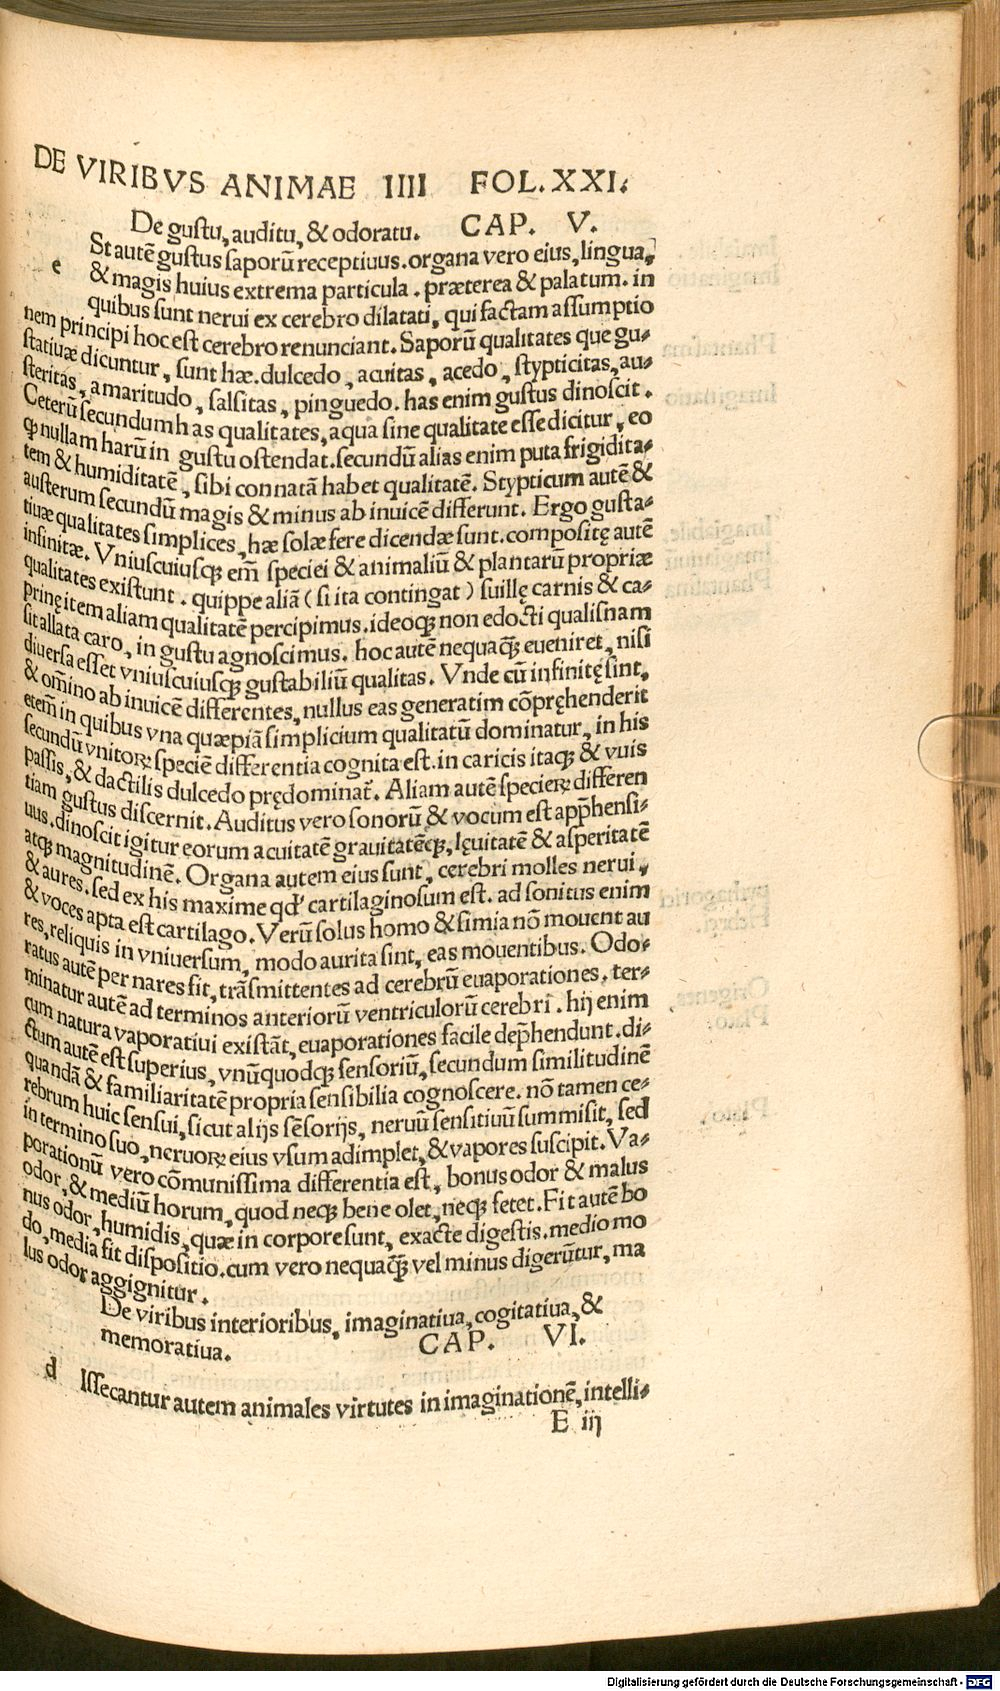 DE VIRIBVS ANIMAE IIII FOL. XXI.
De gustu, auditu, & odoratu. CAP. V.
e St autē gustus saporū receptiuus. organa vero eius, lingua,
& magis huius extrema particula. præterea & palatum. in
quibus sunt nerui ex cerebro dilatati, qui factam assumptio
nem principi hoc est cerebro renunciant. Saporū qualitates que gu-
statiuæ dicuntur, sunt hæ. dulcedo, acuitas, acedo, stypticitas, au-
steritas, amaritudo, salsitas, pinguedo. has enim gustus dinoscit.
Ceterū secundum has qualitates, aqua sine qualitate esse dicitur, eo
ꝙ nullam harū in gustu ostendat. secundū alias enim puta frigidita-
tem & humiditatē, sibi connatā habet qualitatē. Stypticum autē &
austerum secundū magis & minus ab inuicē differunt. Ergo gusta-
tiuæ qualitates simplices, hæ solæ fere dicendæ sunt. compositę autē
infinitæ. Vniuscuiusqꝫ em̄ speciei & animaliū & plantarū propriæ
qualitates existunt. quippe aliā (si ita contingat) suillę carnis & ca-
prinę item aliam qualitatē percipimus. ideoqꝫ non edocti qualisnam
sit allata caro, in gustu agnoscimus. hoc autē nequaqꝫ̄ eueniret, nisi
diuersa esset vniuscuiusqꝫ gustabiliū qualitas. Vnde cū infinitę sint,
& om̄ino ab inuicē differentes, nullus eas generatim cōpręhenderit
etem̄ in quibus vna quæpiā simplicium qualitatū dominatur, in his
secundū vnitoꝝ speciē differentia cognita est. in caricis itaqꝫ & vuis
passis, & dactilis dulcedo prędominat̄. Aliam autē specieꝝ differen
tiam gustus discernit. Auditus vero sonorū & vocum est app̄hensi-
uus. dinoscit igitur eorum acuitatē grauitatēqꝫ, lęuitatē & asperitatē
atqꝫ magnitudinē. Organa autem eius sunt, cerebri molles nerui,
& aures. sed ex his maxime qd' cartilaginosum est. ad sonitus enim
& voces apta est cartilago. Verū solus homo & simia nō mouent au
res, reliquis in vniuersum, modo aurita sint, eas mouentibus. Odo-
ratus autē per nares fit, trāsmittentes ad cerebrū euaporationes. ter-
minatur autē ad terminos anteriorū ventriculorū cerebri. hij enim
cum natura vaporatiui existāt, euaporationes facile dep̄hendunt. di-
ctum autē est superius, vnūquodqꝫ sensoriū, secundum similitudinē
quandā & familiaritatē propria sensibilia cognoscere. nō tamen ce-
rebrum huic sensui, sicut alijs sēsorijs, neruū sensitiuū summisit, sed
in termino suo, neruoꝝ eius vsum adimplet, & vapores suscipit. Va-
porationū vero cōmunissima differentia est, bonus odor & malus
odor, & mediū horum, quod neqꝫ bene olet, neqꝫ fetet. Fit autē bo
nus odor, humidis, quæ in corpore sunt, exacte digestis. medio mo
do, media fit dispositio. cum vero nequaqꝫ̄ vel minus digerūtur, ma
lus odor aggignitur.
De viribus interioribus, imaginatiua, cogitatiua, &
memoratiua. CAP. VI.
d Issecantur autem animales virtutes in imaginationē, intelli-
E iij
Digitalisierung gefördert durch die Deutsche Forschungsgemeinschaft - DFG